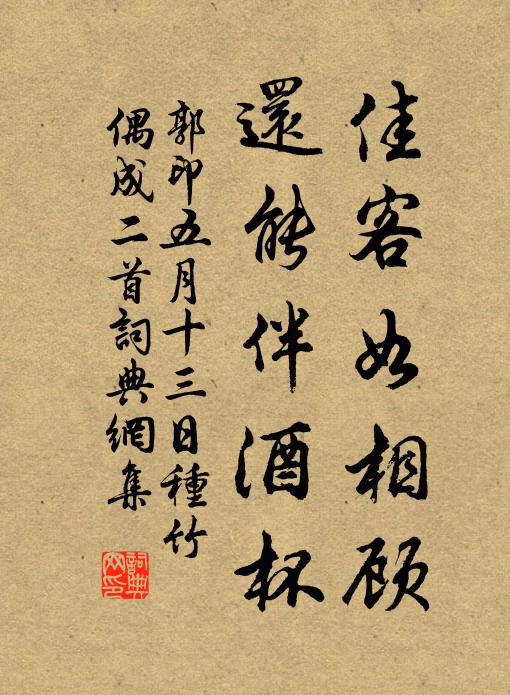 佳客如相顧
還能伴酒杯
郭印五月十三日種竹
偶成二首詞典網集
詞典
网印